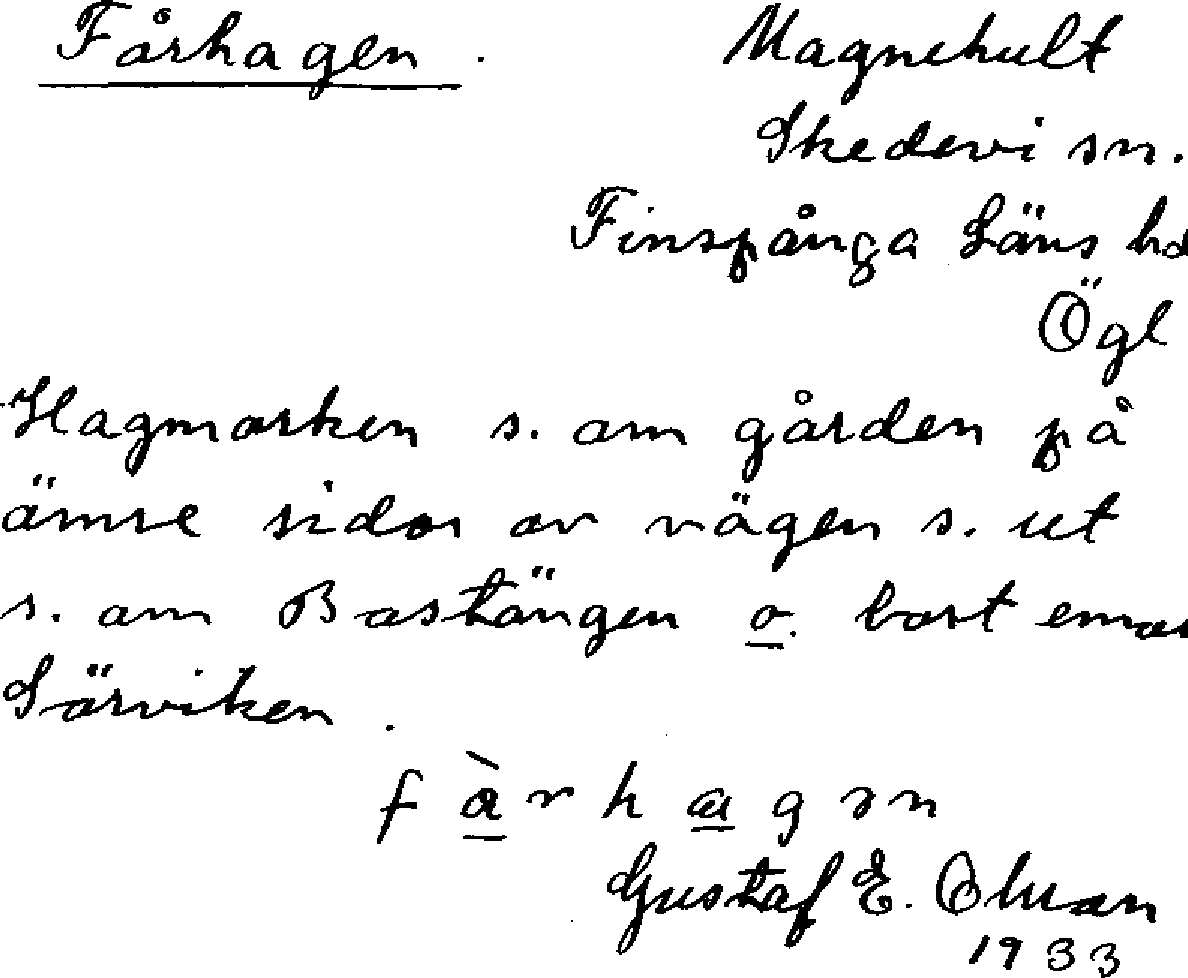 Fårhagen. Magnehult
Skedevi sn.
Finspånga Läns hd
Ögl
Hagmarken s. om gården på
ömse sidor av vägen s. ut
s. om Bastängen o. bort emot
Sörviken.
f å̀ r h a g ə n
Gustaf E. Olman
1933